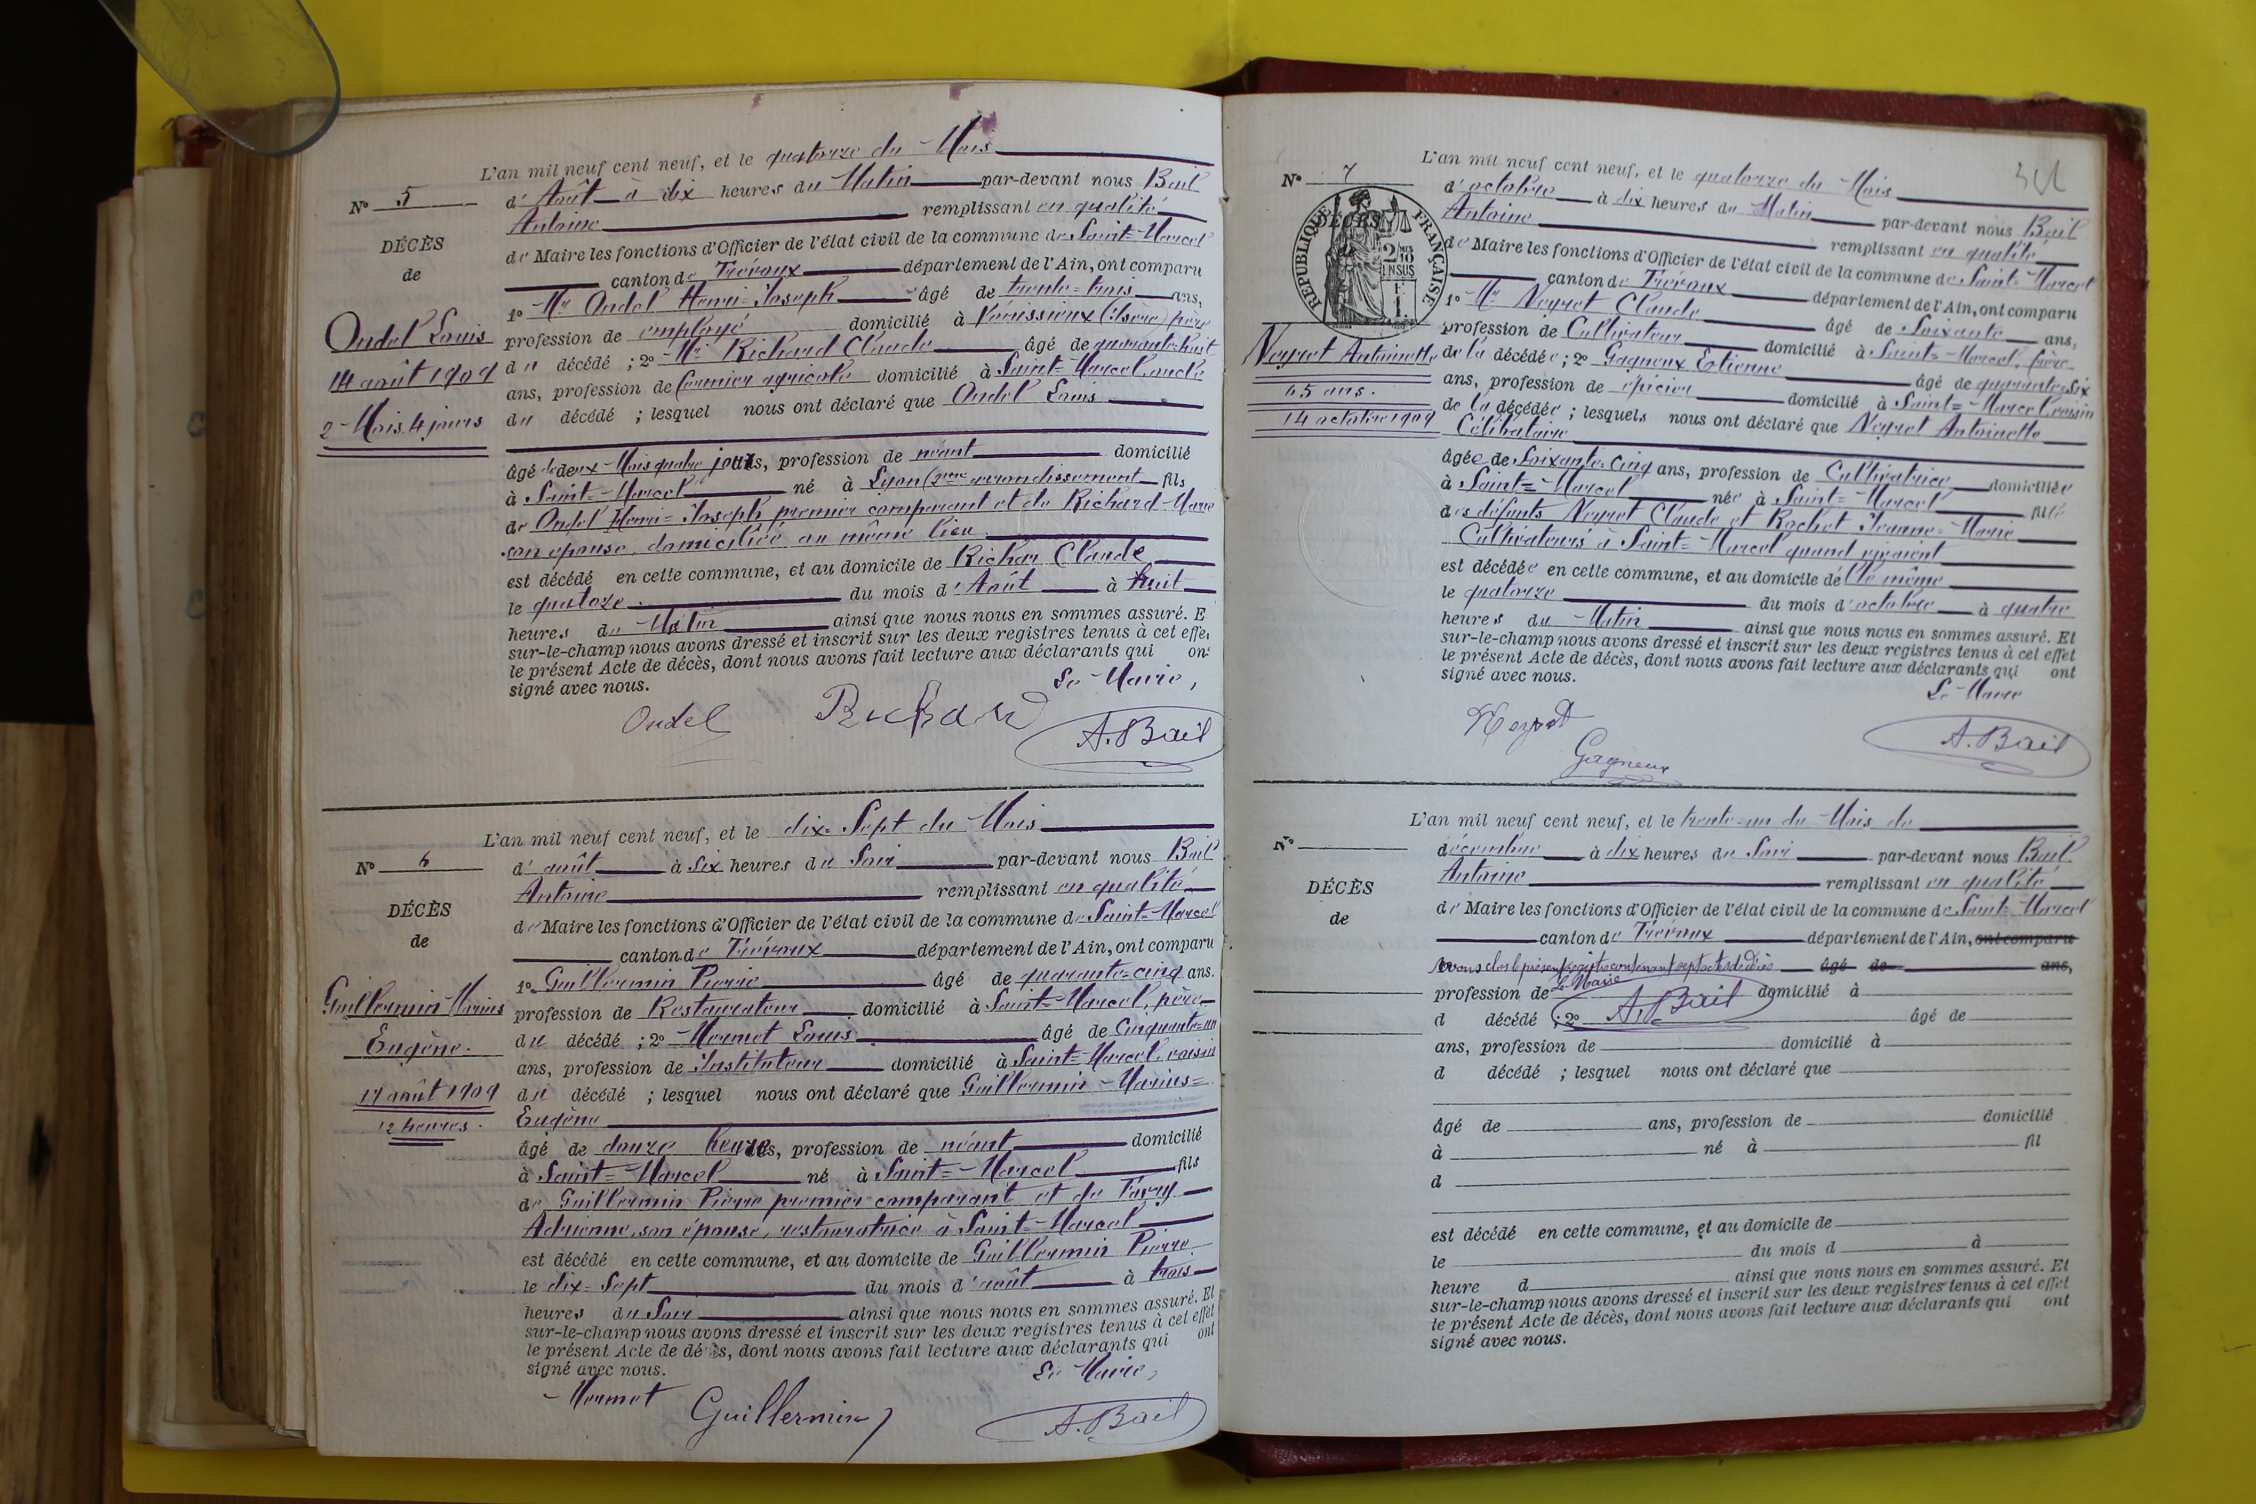 L'an mil neuf cent neuf, et le quatorze du Mois
d'Août à dix heures du Matin par-devant nous Bail
Antoine remplissant en qualité
de Maire les fonctions d'Officier de l'état civil de la commune de Saint-Marcel
canton de Trévoux département de l'Ain, ont comparu
1° Mr Oudel Henri-Joseph âgé de trente-trois ans,
profession de employé domicilié à (Isère) père
du décédé ; 2° Mr Richard Claude âgé de quarante-huit
ans, profession de fermier agricole domicilié à Saint-Marcel, oncle
du décédé ; lesquel nous ont déclaré que Oudel Louis
âgé de deux Mois quatre jours, profession de néant domicilié
à Saint-Marcel né à Lyon ( arrondissement fils
de Oudel Henri-Joseph premier comparant et de Richard Marie
son épouse, domiciliée au même lieu
est décédé en cette commune, et au domicile de Richar Claude
le quatoze du mois d'Août à huit
heures du Matin ainsi que nous nous en sommes assuré. E
sur-le-champ nous avons dressé et inscrit sur les deux registres tenus à cet effe
le présent Acte de décès, dont nous avons fait lecture aux déclarants qui on
signé avec nous. Le Maire,
Oudel Richard A. Bail
N° 5
DÉCÈS
de
Oudel Louis
14 août 1909
2 Mois 4 jours
L'an mil neuf cent neuf, et le dix-Sept du Mois
d'août à six heures du Soir par-devant nous Bail
Antoine remplissant en qualité
de Maire les fonctions d'Officier de l'état civil de la commune de Saint-Marcel
canton de Trévoux département de l'Ain, ont comparu
1° Guillermin Pierre âgé de quarante-cinq ans.
profession de Restaurateur domicilié à Saint-Marcel, père
du décédé ; 2° Mermet Louis âgé de Cinquante-un
ans, profession de Instituteur domicilié à Saint-Marcel, voisin
du décédé ; lesquel nous ont déclaré que Guillermin Marius=
Eugène
âgé de douze heures, profession de néant domicilié
à Saint-Marcel né à Saint-Marcel fils
de Guillermin Pierre premier comparant et de
Adrienne, son épouse, restauratrice à Saint-Marcel
est décédé en cette commune, et au domicile de Guillermin Pierre
le dix-Sept du mois d'août à trois
heures du Soir ainsi que nous nous en sommes assuré. Et
sur-le-champ nous avons dressé et inscrit sur les deux registres tenus à cet effet
le présent Acte de décès, dont nous avons fait lecture aux déclarants qui ont
signé avec nous. Le Maire,
Mermet Guillermin A. Bail
N° 6
DÉCÈS
de
Guillermin Marius
Eugène.
17 août 1909
12 heures.
341
L'an mil neuf cent neuf, et le quatorze du Mois
d'octobre à dix heures du Matin par-devant nous Bail
Antoine remplissant en qualité
de Maire les fonctions d'Officier de l'état civil de la commune de Saint-Marcel
canton de Trévoux département de l'Ain, ont comparu
1° Mr Neyret Claude âgé de Soixante ans,
profession de Cultivateur domicilié à Saint-Marcel, frère
de la décédée ; 2° Gagneux Etienne âgé de quarante-six
ans, profession de épicier domicilié à Saint-Marcel, voisin
de la décédée ; lesquels nous ont déclaré que Neyret Antoinette
Célibataire
âgée de Soixante-Cinq ans, profession de Cultivatrice domiciliée
à Saint-Marcel née à Saint-Marcel fille
des défunts Neyret Claude et Rochet Jeanne-Marie
Cultivateurs à Saint-Marcel quand vivaient
est décédée en cette commune, et au domicile de lle même
le quatorze du mois d'octobre à quatre
heures du Matin ainsi que nous nous en sommes assuré. Et
sur-le-champ nous avons dressé et inscrit sur les deux registres tenus à cet effet
le présent Acte de décès, dont nous avons fait lecture aux déclarants qui ont
signé avec nous. Le Maire
Neyret Gagneux A. Bail
N° 7
RÉPUBLIQUE FRANÇAISE
DÉCÈS
2/10 EN SUS
Neyret Antoinette
65 ans.
14 octobre 1909
L'an mil neuf cent neuf, et le trente-un du Mois de
décembre à dix heures du Soir par-devant nous Bail
Antoine remplissant en qualité
de Maire les fonctions d'Officier de l'état civil de la commune de Saint-Marcel
canton de Trévoux département de l'Ain, ont comparu
avons clos le présent registre contenant sept actes de décès âgé de ans,
Le Maire
profession de domicilié à
d décédé ; 2° A. Bail âgé de
ans, profession de domicilié à
d décédé ; lesquel nous ont déclaré que
âgé de ans, profession de domicilié
à né à fil
d
est décédé en cette commune, et au domicile de
le du mois d à
heure d ainsi que nous nous en sommes assuré. Et
sur-le-champ nous avons dressé et inscrit sur les deux registres tenus à cet effet
le présent Acte de décès, dont nous avons fait lecture aux déclarants qui ont
signé avec nous.
N°
DÉCÈS
de